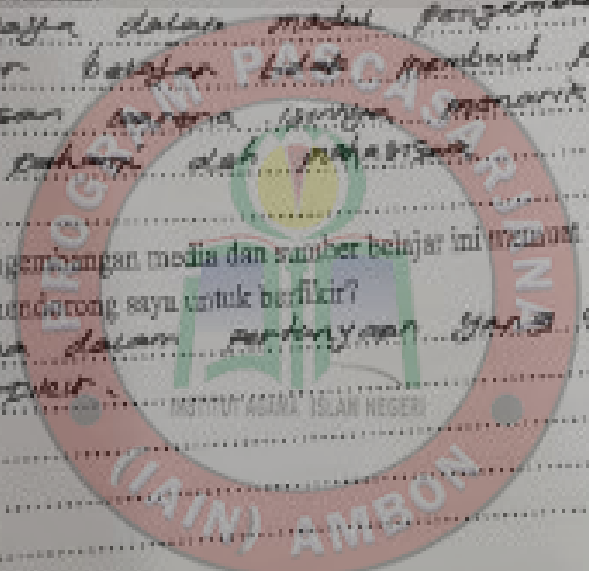 saya dalam modul pengemb
r belajar tidak membuat
san karena isinya menarik
paham oleh mahasiswa
ngembangan media dan sumber belajar ini memuat
mendorong saya untuk berfikir?
a dalam pertanyaan yang
PROGRAM PASCASARJANA
INSTITUT AGAMA ISLAM NEGERI
(IAIN) AMBON